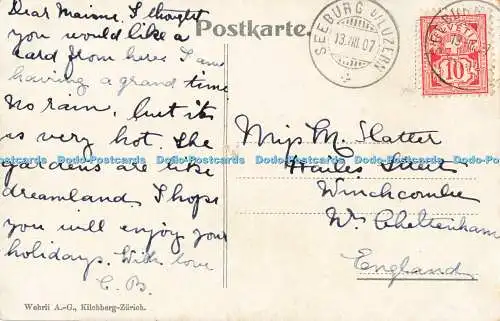 Postkarte.
Dear Maisie. I thought
you would like a
card from here I am
having a grand time
no rain, but it
is very hot. The
gardens are like
dreamland. I hope
you will enjoy your
holidays. With love
C. B.
SEEBURG b/LUZERN
13.VIII.07
HELVETIA
10
Miss M. Slatter
Harles Street
Winchcombe
Nr. Cheltenham
England
Wehrli A.-G., Kilchberg-Zürich.
Dod-Postcards Dod-Postcards Dod-Postcards Dod-Postcards Dod-Postcards Dod-Postcards